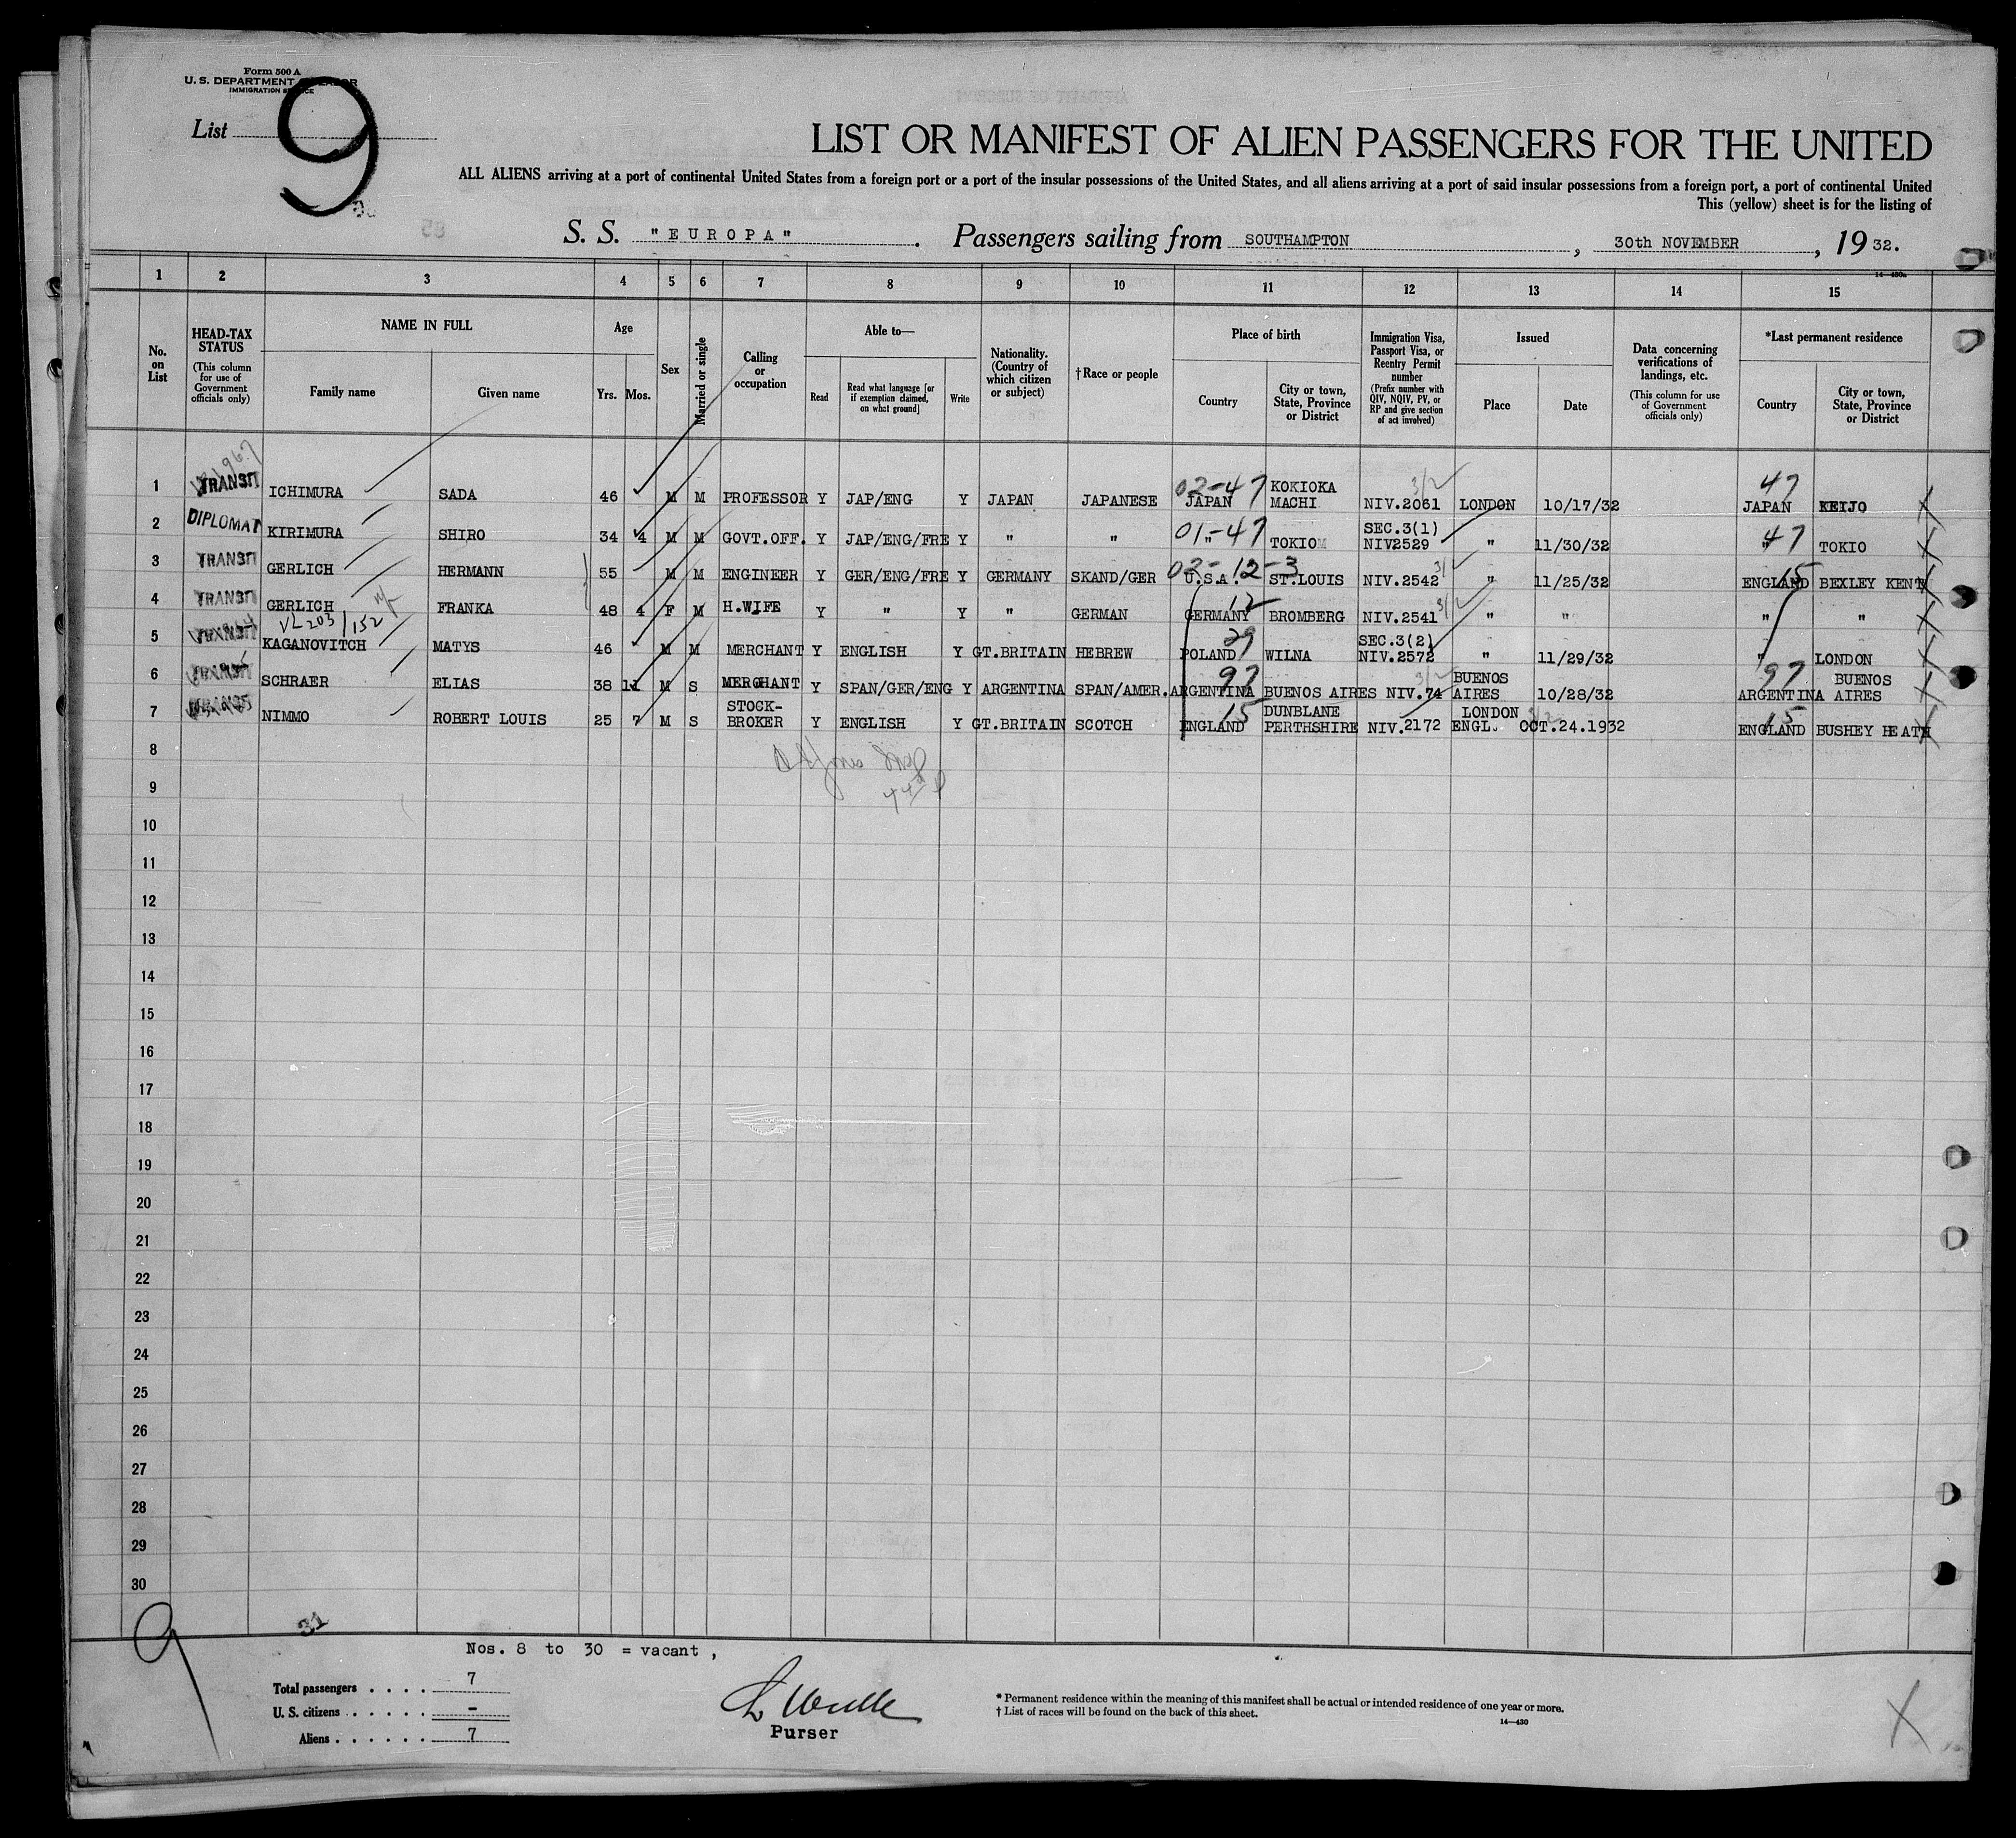 Form 500 A
U. S. DEPARTMENT OF LABOR
IMMIGRATION SERVICE
List 9
LIST OR MANIFEST OF ALIEN PASSENGERS FOR THE UNITED
ALL ALIENS arriving at a port of continental United States from a foreign port or a port of the insular possessions of the United States, and all aliens arriving at a port of said insular possessions from a foreign port, a port of continental United
This (yellow) sheet is for the listing of
S. S. "EUROPA". Passengers sailing from SOUTHAMPTON, 30th NOVEMBER, 1932.
14—430a
1 2 3 4 5 6 7 8 9 10 11 12 13 14 15
No. on List
HEAD-TAX STATUS (This column for use of Government officials only)
NAME IN FULL Family name Given name
Age Yrs. Mos.
Sex
Married or single
Calling or occupation
Able to— Read Read what language [or if exemption claimed, on what ground] Write
Nationality. (Country of which citizen or subject)
†Race or people
Place of birth Country City or town, State, Province or District
Immigration Visa, Passport Visa, or Reentry Permit number (Prefix number with QIV, NQIV, PV, or RP and give section of act involved)
Issued Place Date
Data concerning verifications of landings, etc. (This column for use of Government officials only)
*Last permanent residence Country City or town, State, Province or District
1 TRANSIT ICHIMURA SADA 46 M M PROFESSOR Y JAP/ENG Y JAPAN JAPANESE 02-47 JAPAN KOKIOKA MACHI 3/2 NIV.2061 LONDON 10/17/32 47 JAPAN KEIJO
2 DIPLOMAT KIRIMURA SHIRO 34 4 M M GOVT.OFF. Y JAP/ENG/FRE Y " " 01-47 " TOKIO SEC.3(1) NIV2529 " 11/30/32 47 " TOKIO
3 TRANSIT GERLICH HERMANN 55 M M ENGINEER Y GER/ENG/FRE Y GERMANY SKAND/GER 02-12-3 U.S.A. ST.LOUIS NIV.2542 3/2 " 11/25/32 15 ENGLAND BEXLEY KENT
4 TRANSIT GERLICH FRANKA 48 4 F M H.WIFE Y " Y " GERMAN 12 GERMANY BROMBERG NIV.2541 3/2 " " " "
VL 203/152
5 TRANSIT KAGANOVITCH MATYS 46 M M MERCHANT Y ENGLISH Y GT.BRITAIN HEBREW 29 POLAND WILNA SEC.3(2) NIV.2572 " 11/29/32 " LONDON
6 TRANSIT SCHRAER ELIAS 38 11 M S MERCHANT Y SPAN/GER/ENG Y ARGENTINA SPAN/AMER. 97 ARGENTINA BUENOS AIRES NIV.74 BUENOS AIRES 10/28/32 97 ARGENTINA BUENOS AIRES
7 NIMMO ROBERT LOUIS 25 7 M S STOCK-BROKER Y ENGLISH Y GT.BRITAIN SCOTCH 15 ENGLAND DUNBLANE PERTHSHIRE NIV.2172 LONDON ENGL. OCT.24.1932 15 ENGLAND BUSHEY HEATH
8
9
10
11
12
13
14
15
16
17
18
19
20
21
22
23
24
25
26
27
28
29
30
9
31
Nos. 8 to 30 = vacant,
Total passengers . . . . 7
U. S. citizens . . . . . . -
Aliens . . . . . . 7
Purser
* Permanent residence within the meaning of this manifest shall be actual or intended residence of one year or more.
† List of races will be found on the back of this sheet.
14—430
X